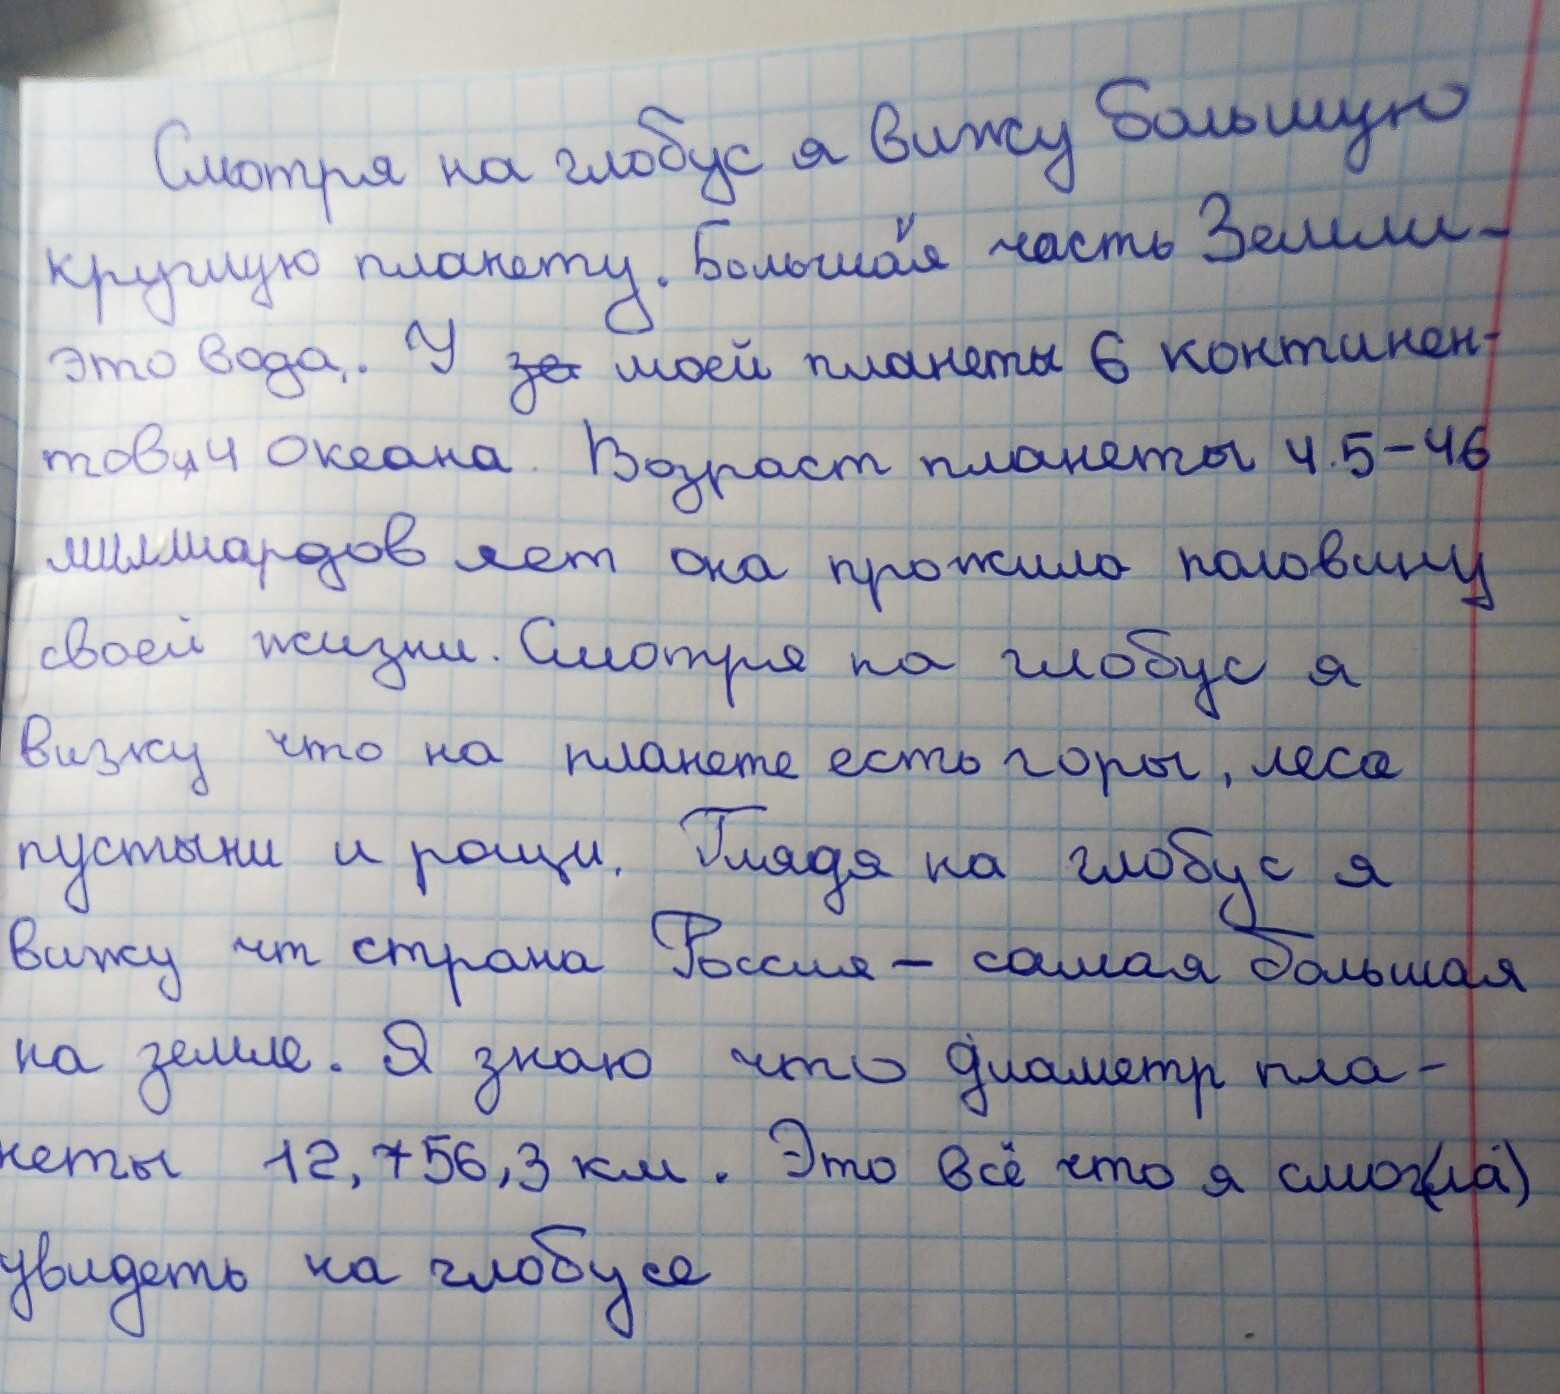 Смотря на глобус я вижу большую
круглую планету. Большая часть Земли-
это вода,. У за моей планеты 6 континен-
тов, и 4 океана. Возраст планеты 4.5-46
миллиардов лет она прожила половину
своей жизни. Смотря на глобус я
вижу что на планете есть горы, леса
пустыни и рощи. Глядя на глобус я
вижу чт страна Россия - самая большая
на земле. Я знаю что диаметр пла-
неты 12,756,3 км. Это всё что я смог(ла)
увидеть на глобусе